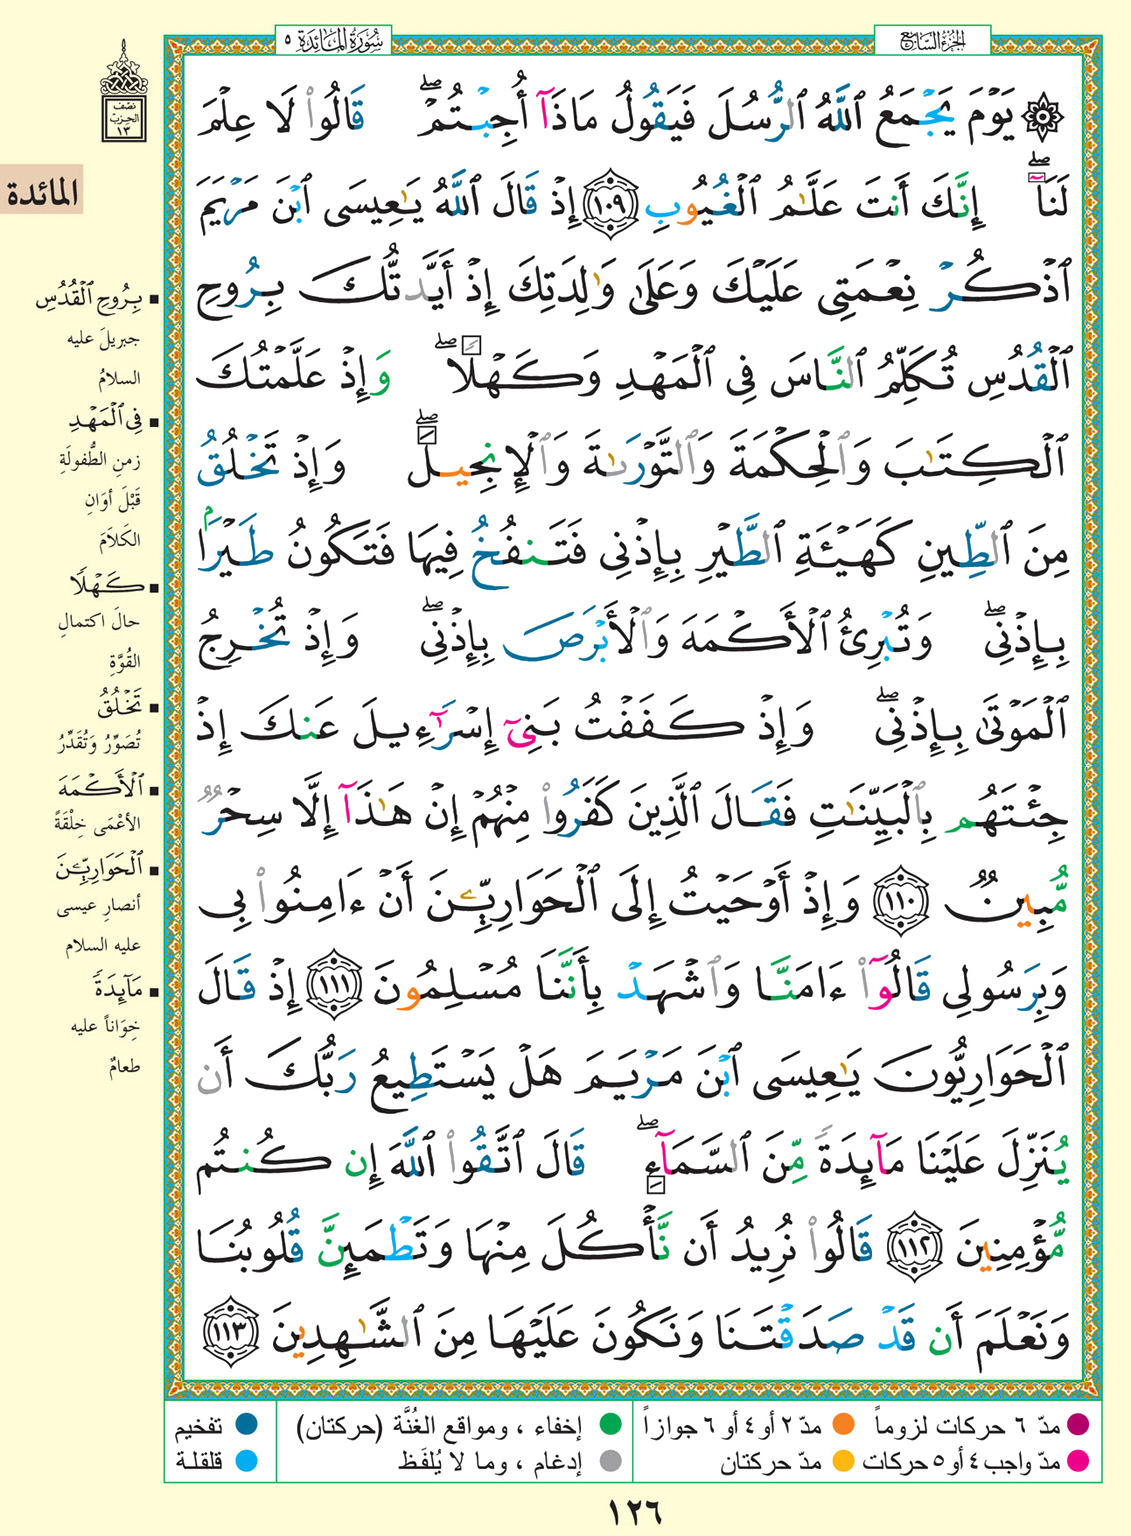 الجزء السابع
سُورَةُ المَائِدَةِ ٥
نصف
الحزب
١٣
المائدة
۞ يَوْمَ يَجْمَعُ ٱللَّهُ ٱلرُّسُلَ فَيَقُولُ مَاذَآ أُجِبْتُمْ ۖ قَالُوا۟ لَا عِلْمَ
لَنَآ ۖ إِنَّكَ أَنتَ عَلَّٰمُ ٱلْغُيُوبِ ١٠٩ إِذْ قَالَ ٱللَّهُ يَٰعِيسَى ٱبْنَ مَرْيَمَ
ٱذْكُرْ نِعْمَتِى عَلَيْكَ وَعَلَىٰ وَٰلِدَتِكَ إِذْ أَيَّدتُّكَ بِرُوحِ
ٱلْقُدُسِ تُكَلِّمُ ٱلنَّاسَ فِى ٱلْمَهْدِ وَكَهْلًا ۖ وَإِذْ عَلَّمْتُكَ
ٱلْكِتَٰبَ وَٱلْحِكْمَةَ وَٱلتَّوْرَىٰةَ وَٱلْإِنجِيلَ ۖ وَإِذْ تَخْلُقُ
مِنَ ٱلطِّينِ كَهَيْـَٔةِ ٱلطَّيْرِ بِإِذْنِى فَتَنفُخُ فِيهَا فَتَكُونُ طَيْرًۢا
بِإِذْنِى ۖ وَتُبْرِئُ ٱلْأَكْمَهَ وَٱلْأَبْرَصَ بِإِذْنِى ۖ وَإِذْ تُخْرِجُ
ٱلْمَوْتَىٰ بِإِذْنِى ۖ وَإِذْ كَفَفْتُ بَنِىٓ إِسْرَٰٓءِيلَ عَنكَ إِذْ
جِئْتَهُم بِٱلْبَيِّنَٰتِ فَقَالَ ٱلَّذِينَ كَفَرُوا۟ مِنْهُمْ إِنْ هَٰذَآ إِلَّا سِحْرٌ
مُّبِينٌ ١١٠ وَإِذْ أَوْحَيْتُ إِلَى ٱلْحَوَارِيِّـۧنَ أَنْ ءَامِنُوا۟ بِى
وَبِرَسُولِى قَالُوٓا۟ ءَامَنَّا وَٱشْهَدْ بِأَنَّنَا مُسْلِمُونَ ١١١ إِذْ قَالَ
ٱلْحَوَارِيُّونَ يَٰعِيسَى ٱبْنَ مَرْيَمَ هَلْ يَسْتَطِيعُ رَبُّكَ أَن
يُنَزِّلَ عَلَيْنَا مَآئِدَةً مِّنَ ٱلسَّمَآءِ ۖ قَالَ ٱتَّقُوا۟ ٱللَّهَ إِن كُنتُم
مُّؤْمِنِينَ ١١٢ قَالُوا۟ نُرِيدُ أَن نَّأْكُلَ مِنْهَا وَتَطْمَئِنَّ قُلُوبُنَا
وَنَعْلَمَ أَن قَدْ صَدَقْتَنَا وَنَكُونَ عَلَيْهَا مِنَ ٱلشَّٰهِدِينَ ١١٣
▪ بِرُوحِ ٱلْقُدُسِ
جبريلَ عليه
السلامُ
▪ فِى ٱلْمَهْدِ
زمنِ الطُّفولَةِ
قَبْلَ أوَانِ
الكَلَامَ
▪ كَهْلًا
حالَ اكتمالِ
القُوَّةِ
▪ تَخْلُقُ
تُصَوِّرُ وَتُقَدِّرُ
▪ ٱلْأَكْمَهَ
الأعْمَى خِلْقَةً
▪ ٱلْحَوَارِيِّـۧنَ
أنصارِ عيسى
عليه السلام
▪ مَآئِدَةً
خِوَاناً عليه
طعامٌ
مدّ ٦ حركات لزوماً
مدّ ٢ أو ٤ أو ٦ جوازاً
إخفاء ، ومواقع الغُنَّة (حركتان)
تفخيم
مدّ واجب ٤ أو ٥ حركات
مدّ حركتان
إدغام ، وما لا يُلفَظ
قلقلة
١٢٦